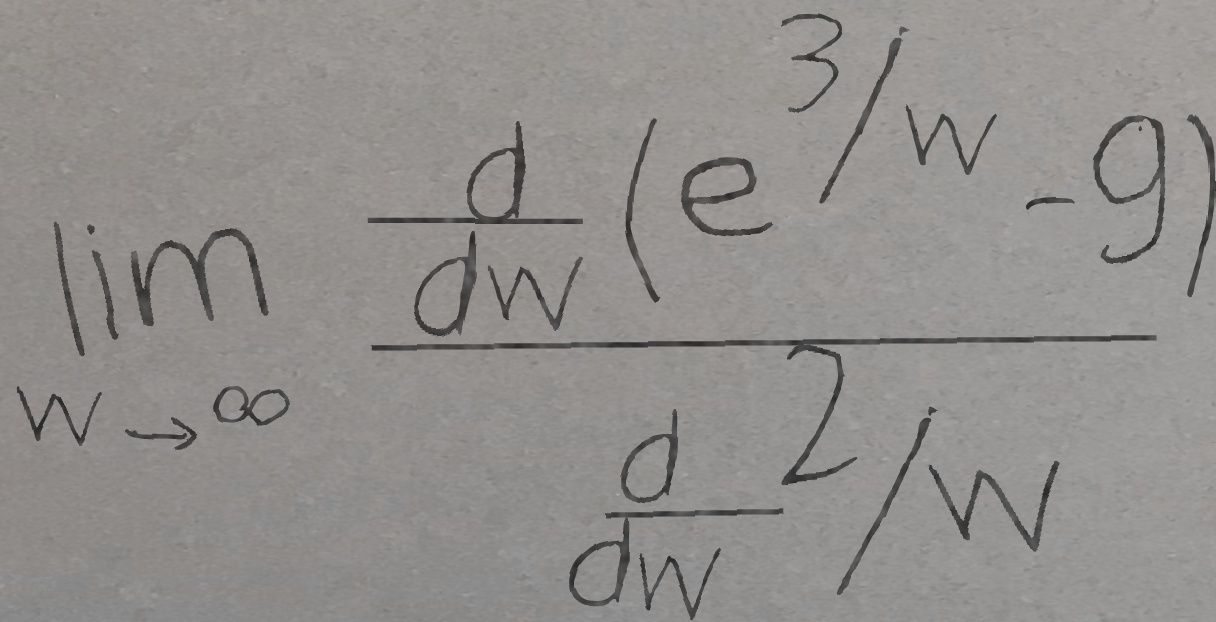 \lim_{w \to \infty} \frac{\frac{d}{dw}(e^{3/w} - 9)}{\frac{d}{dw} 2/w}